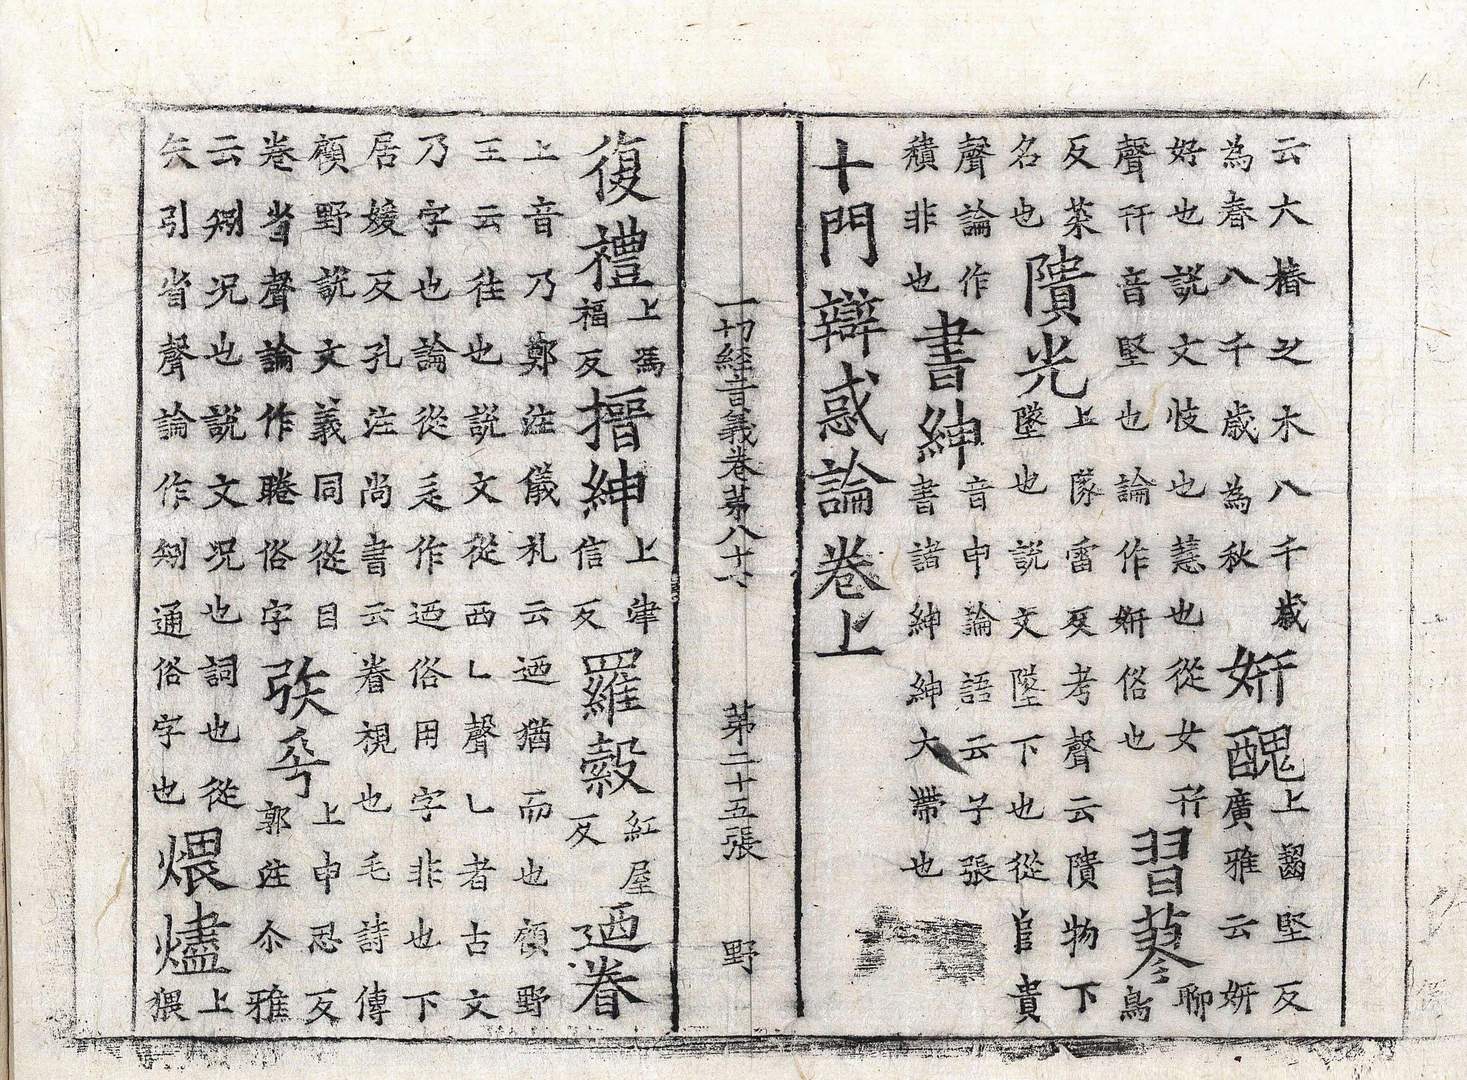 云大椿之木八千歲為春八千歲為秋妍醜上齧堅反廣雅云妍
好也説文岐也慧也從女幵聲幵音堅也論作妍俗也習蓼聊鳥
反菜名也隤光上隊雷反考聲云隤物下墜也説文墜下也從𨸏貴
聲論作穨非也書紳音申論語云子張書諸紳紳大帶也
十門辯惑論卷上
一切經音義卷苐八十七 苐二十五張 野
復禮上馮福反搢紳上津信反羅縠紅屋反迺眷
上音乃鄭注儀札云迺猶而也顧野王云往也説文從西乚聲乚者古文
乃字也論從辵作迺俗用字非也下居媛反孔注尚書云眷視也毛詩傳
顧野説文義同從目卷省聲論作睠俗字矤乎上申忍反郭注尒雅
云矧况也説文况也詞也從矢引省聲論作矧通俗字也煨燼上猥